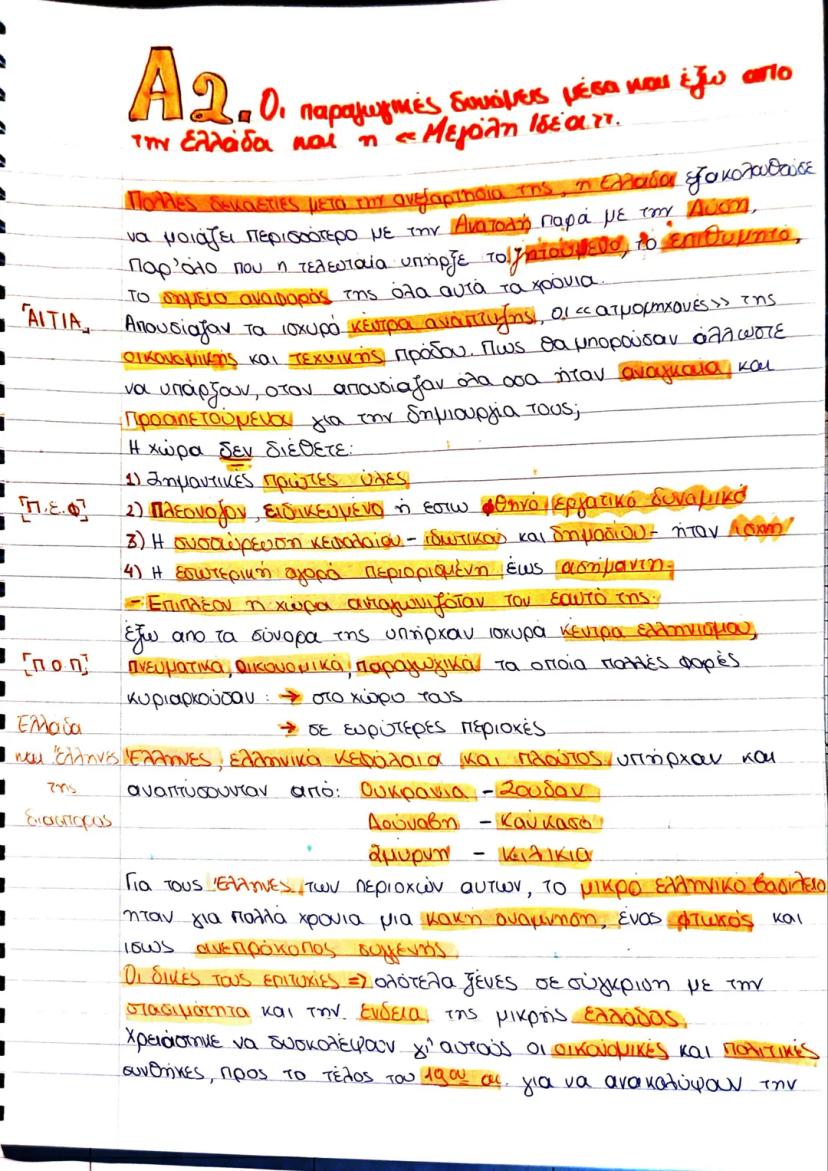 Α2. Οι παραγωγικές δυνάμεις μέσα και έξω απο
την Ελλάδα και η «Μεγάλη Ιδέα».
Πολλές δεκαετίες μετά την ανεξαρτησία της, η Ελλάδα εξακολουθούσε
να μοιάζει περισσότερο με την Ανατολή παρά με την Δύση,
παρ'όλο που η τελευταία υπήρξε το ζητούμενο, το επιθυμητό,
το σημείο αναφοράς της όλα αυτά τα χρόνια.
"ΑΙΤΙΑ" Απουσίαζαν τα ισχυρά κέντρα αναπτυξης, οι «ατμομηχανές» της
οικονομικής και τεχνικής πρόδου. Πως θα μπορούσαν άλλωστε
να υπάρξουν, όταν απουσίαζαν όλα όσα ήταν αναγκαία και
προαπετούμενα για την δημιουργία τους;
Η χώρα δεν διέθετε:
1) Σημαντικές πρώτες ύλες
[Π.Ε.Φ] 2) Πλεονάζον, ειδικευμένο ή έστω φθηνό εργατικό δυναμικό
3) Η συσσώρευση κεφαλαίου - ιδιωτικού και δημοσίου - ήταν ισχνή
4) Η εσωτερική αγορά περιορισμένη έως ασήμαντη.
- Επιπλέον η χώρα ανταγωνιζόταν τον εαυτό της.
έξω απο τα σύνορα της υπήρχαν ισχυρά κέντρα ελληνισμού,
[Π Ο Π] πνευματικά, οικονομικά, παραγωγικά τα οποία πολλές φορές
κυριαρχούσαν: → στο χώρο τους
Ελλάδα → σε ευρύτερες περιοχές
και Έλληνες Έλληνες, ελληνικά κεφάλαια και πλούτος υπήρχαν και
της αναπτύσουνταν από: Ουκρανία - Σουδάν
διασποράς Δούναβη - Καύκασο
Σμύρνη - Κιλικία
Για τους Έλληνες των περιοχών αυτών, το μικρό ελληνικό βασίλειο
ήταν για πολλά χρόνια μια κακή ανάμνηση, ένας φτωχός και
ίσως ανεπρόκοπος συγγενής.
Οι δικές τους επιτυχίες => ολότελα ξένες σε σύγκριση με την
στασιμότητα και την ένδεια της μικρής Ελλάδας.
Χρειάστηκε να δυσκολέψουν γι'αυτούς οι οικονομικές και πολιτικές
συνθήκες, προς το τέλος του 19ου αι. για να ανακαλύψουν την